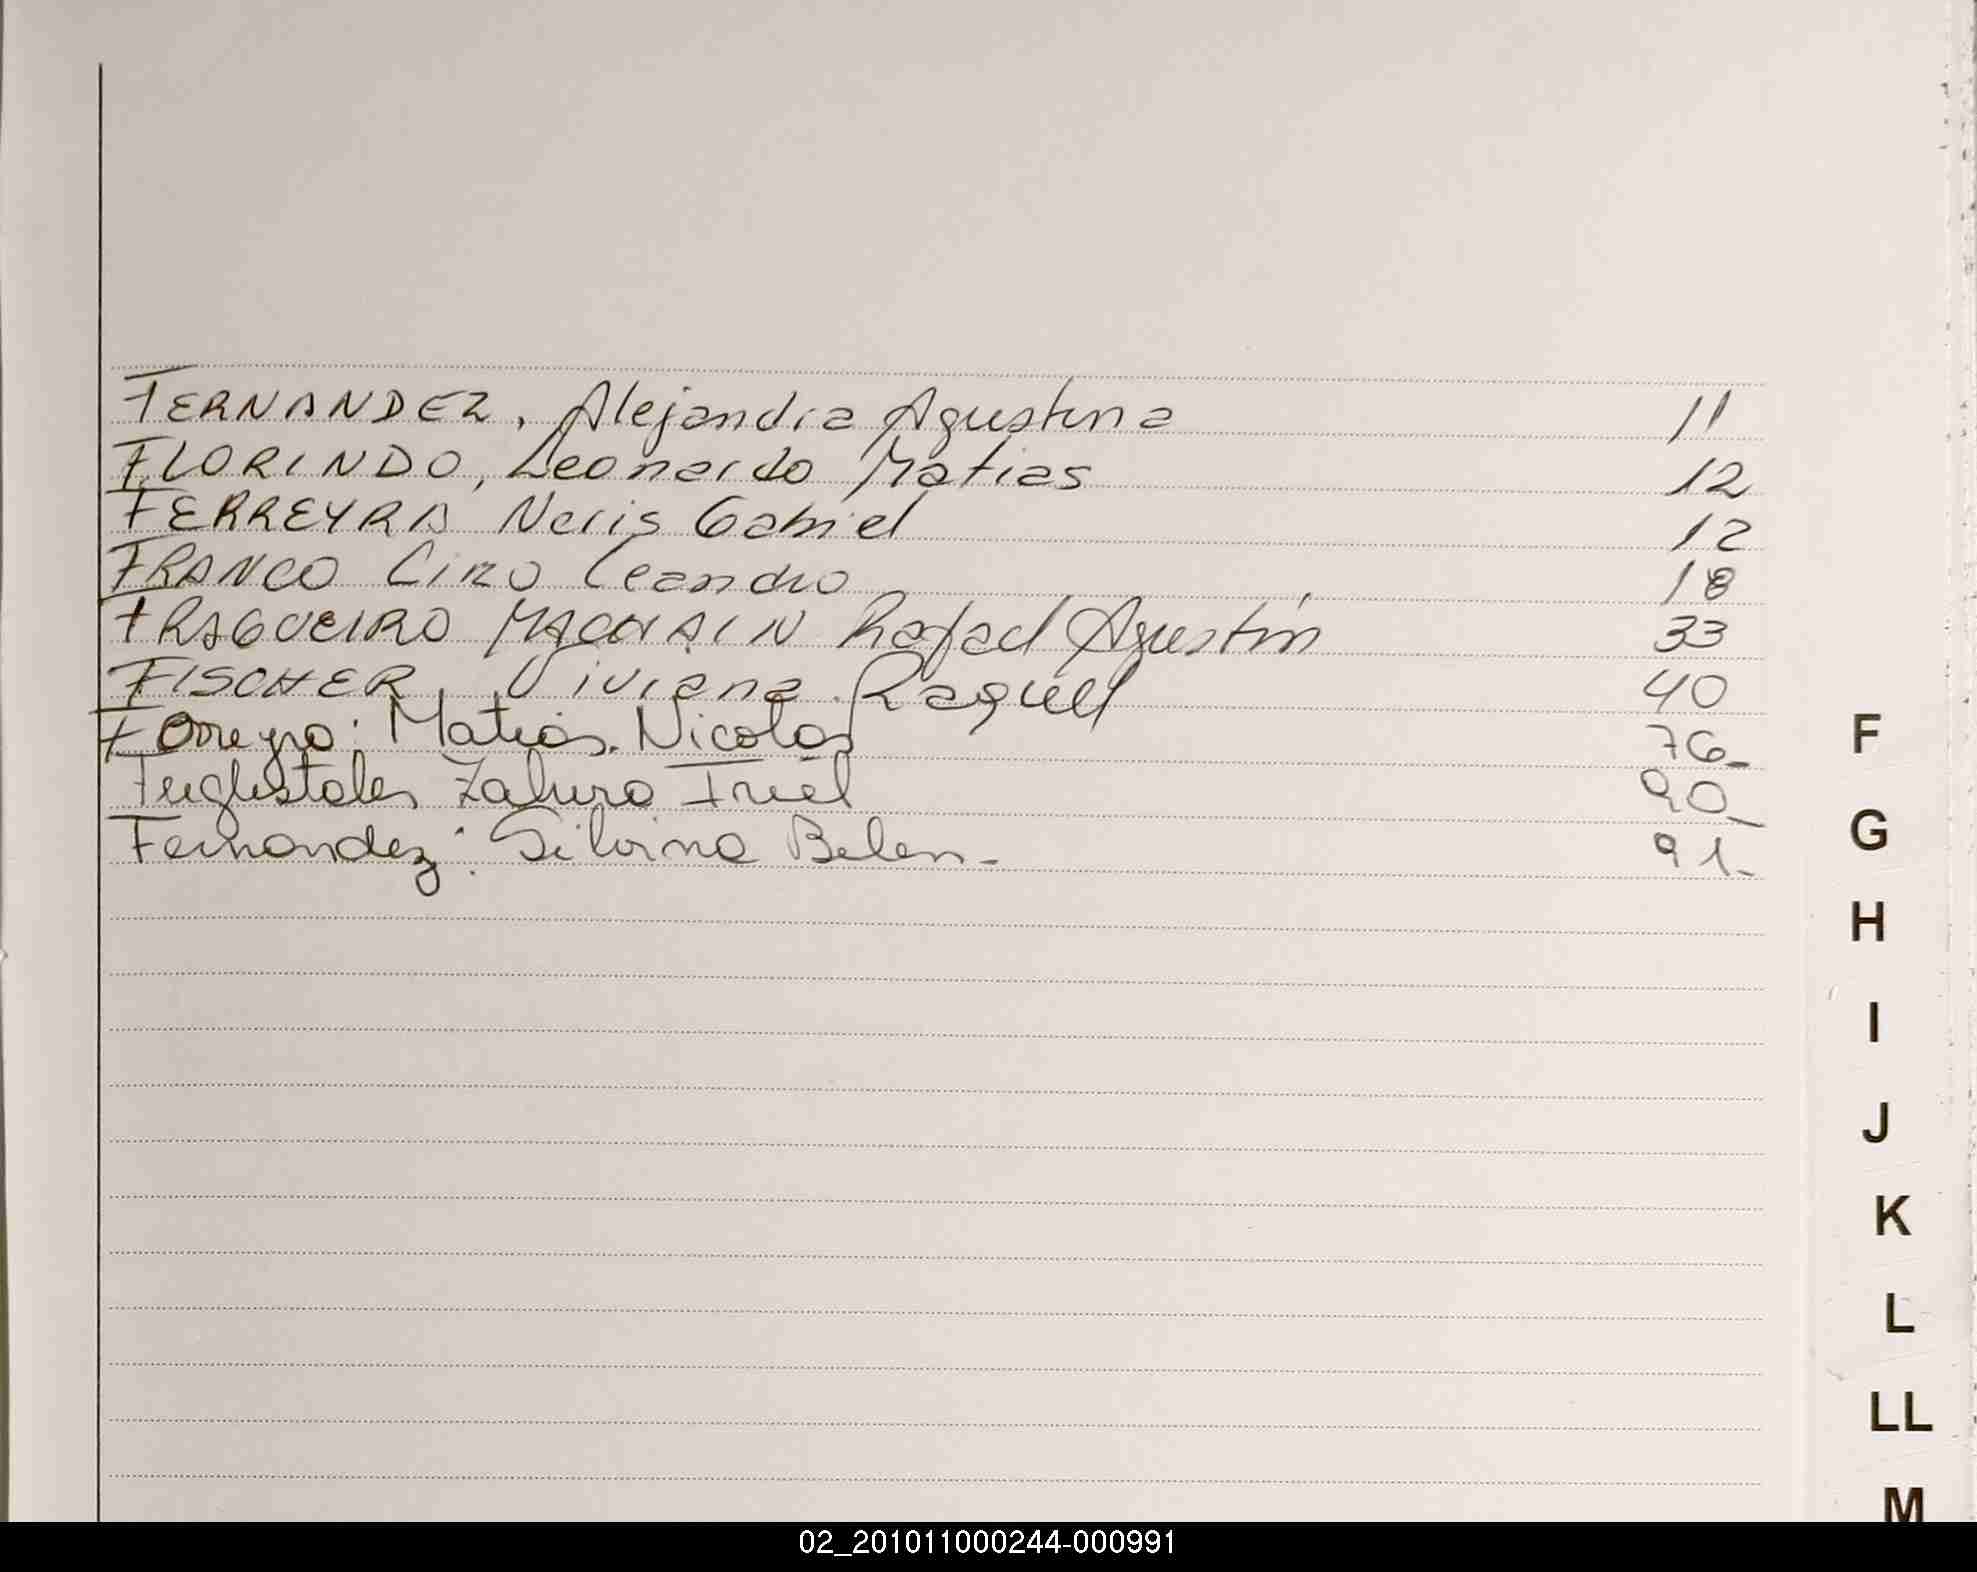 FERNANDEZ, Alejandra Agustina 11
FLORINDO, Leonardo Matias 12
FERREYRA Neris Gabriel 12
FRANCO Ciro Leandro 18
FRAGUEIRO Rafael Agustín 33
FISCHER, Viviana Raquel 40
Forreyra: Matias. Nicolas 76_
Iriel 90_
Fernandez: Silvina Belen- 91-
F
G
H
I
J
K
L
LL
M
02_201011000244-000991